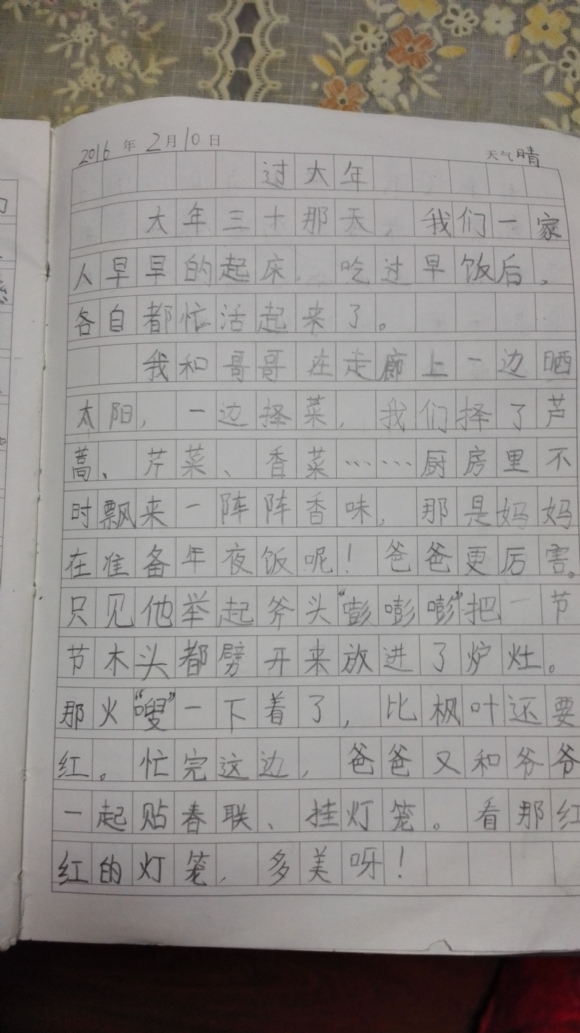 2016 年 2 月 10 日 天气 晴
过大年
大年三十那天，我们一家
人早早的起床，吃过早饭后，
各自都忙活起来了。
我和哥哥在走廊上一边晒
太阳，一边择菜，我们择了芦
蒿、芹菜、香菜……厨房里不
时飘来一阵阵香味，那是妈妈
在准备年夜饭呢！爸爸更厉害。
只见他举起斧头“嘭嘭嘭”把一节
节木头都劈开来放进了炉灶。
那火“嗖”一下着了，比枫叶还要
红。忙完这边，爸爸又和爷爷
一起贴春联、挂灯笼。看那红
红的灯笼，多美呀！